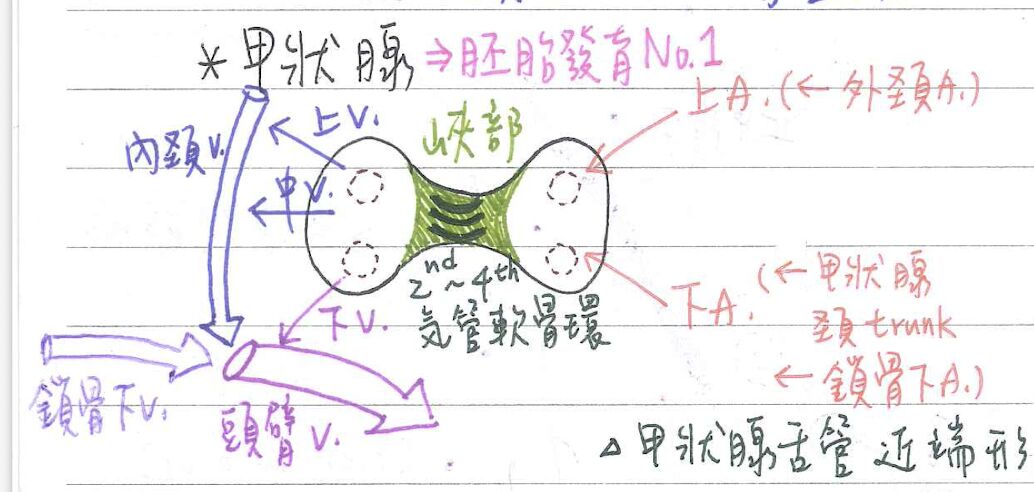 * 甲狀腺 ⇒ 胚胎發育No.1
上A. (← 外頸A.)
內頸V.
上V.
峽部
中V.
2nd ~ 4th
気管軟骨環
下V.
下A. (← 甲狀腺
頸trunk
← 鎖骨下A.)
鎖骨下V.
頭臂V.
△ 甲狀腺舌管 近端形